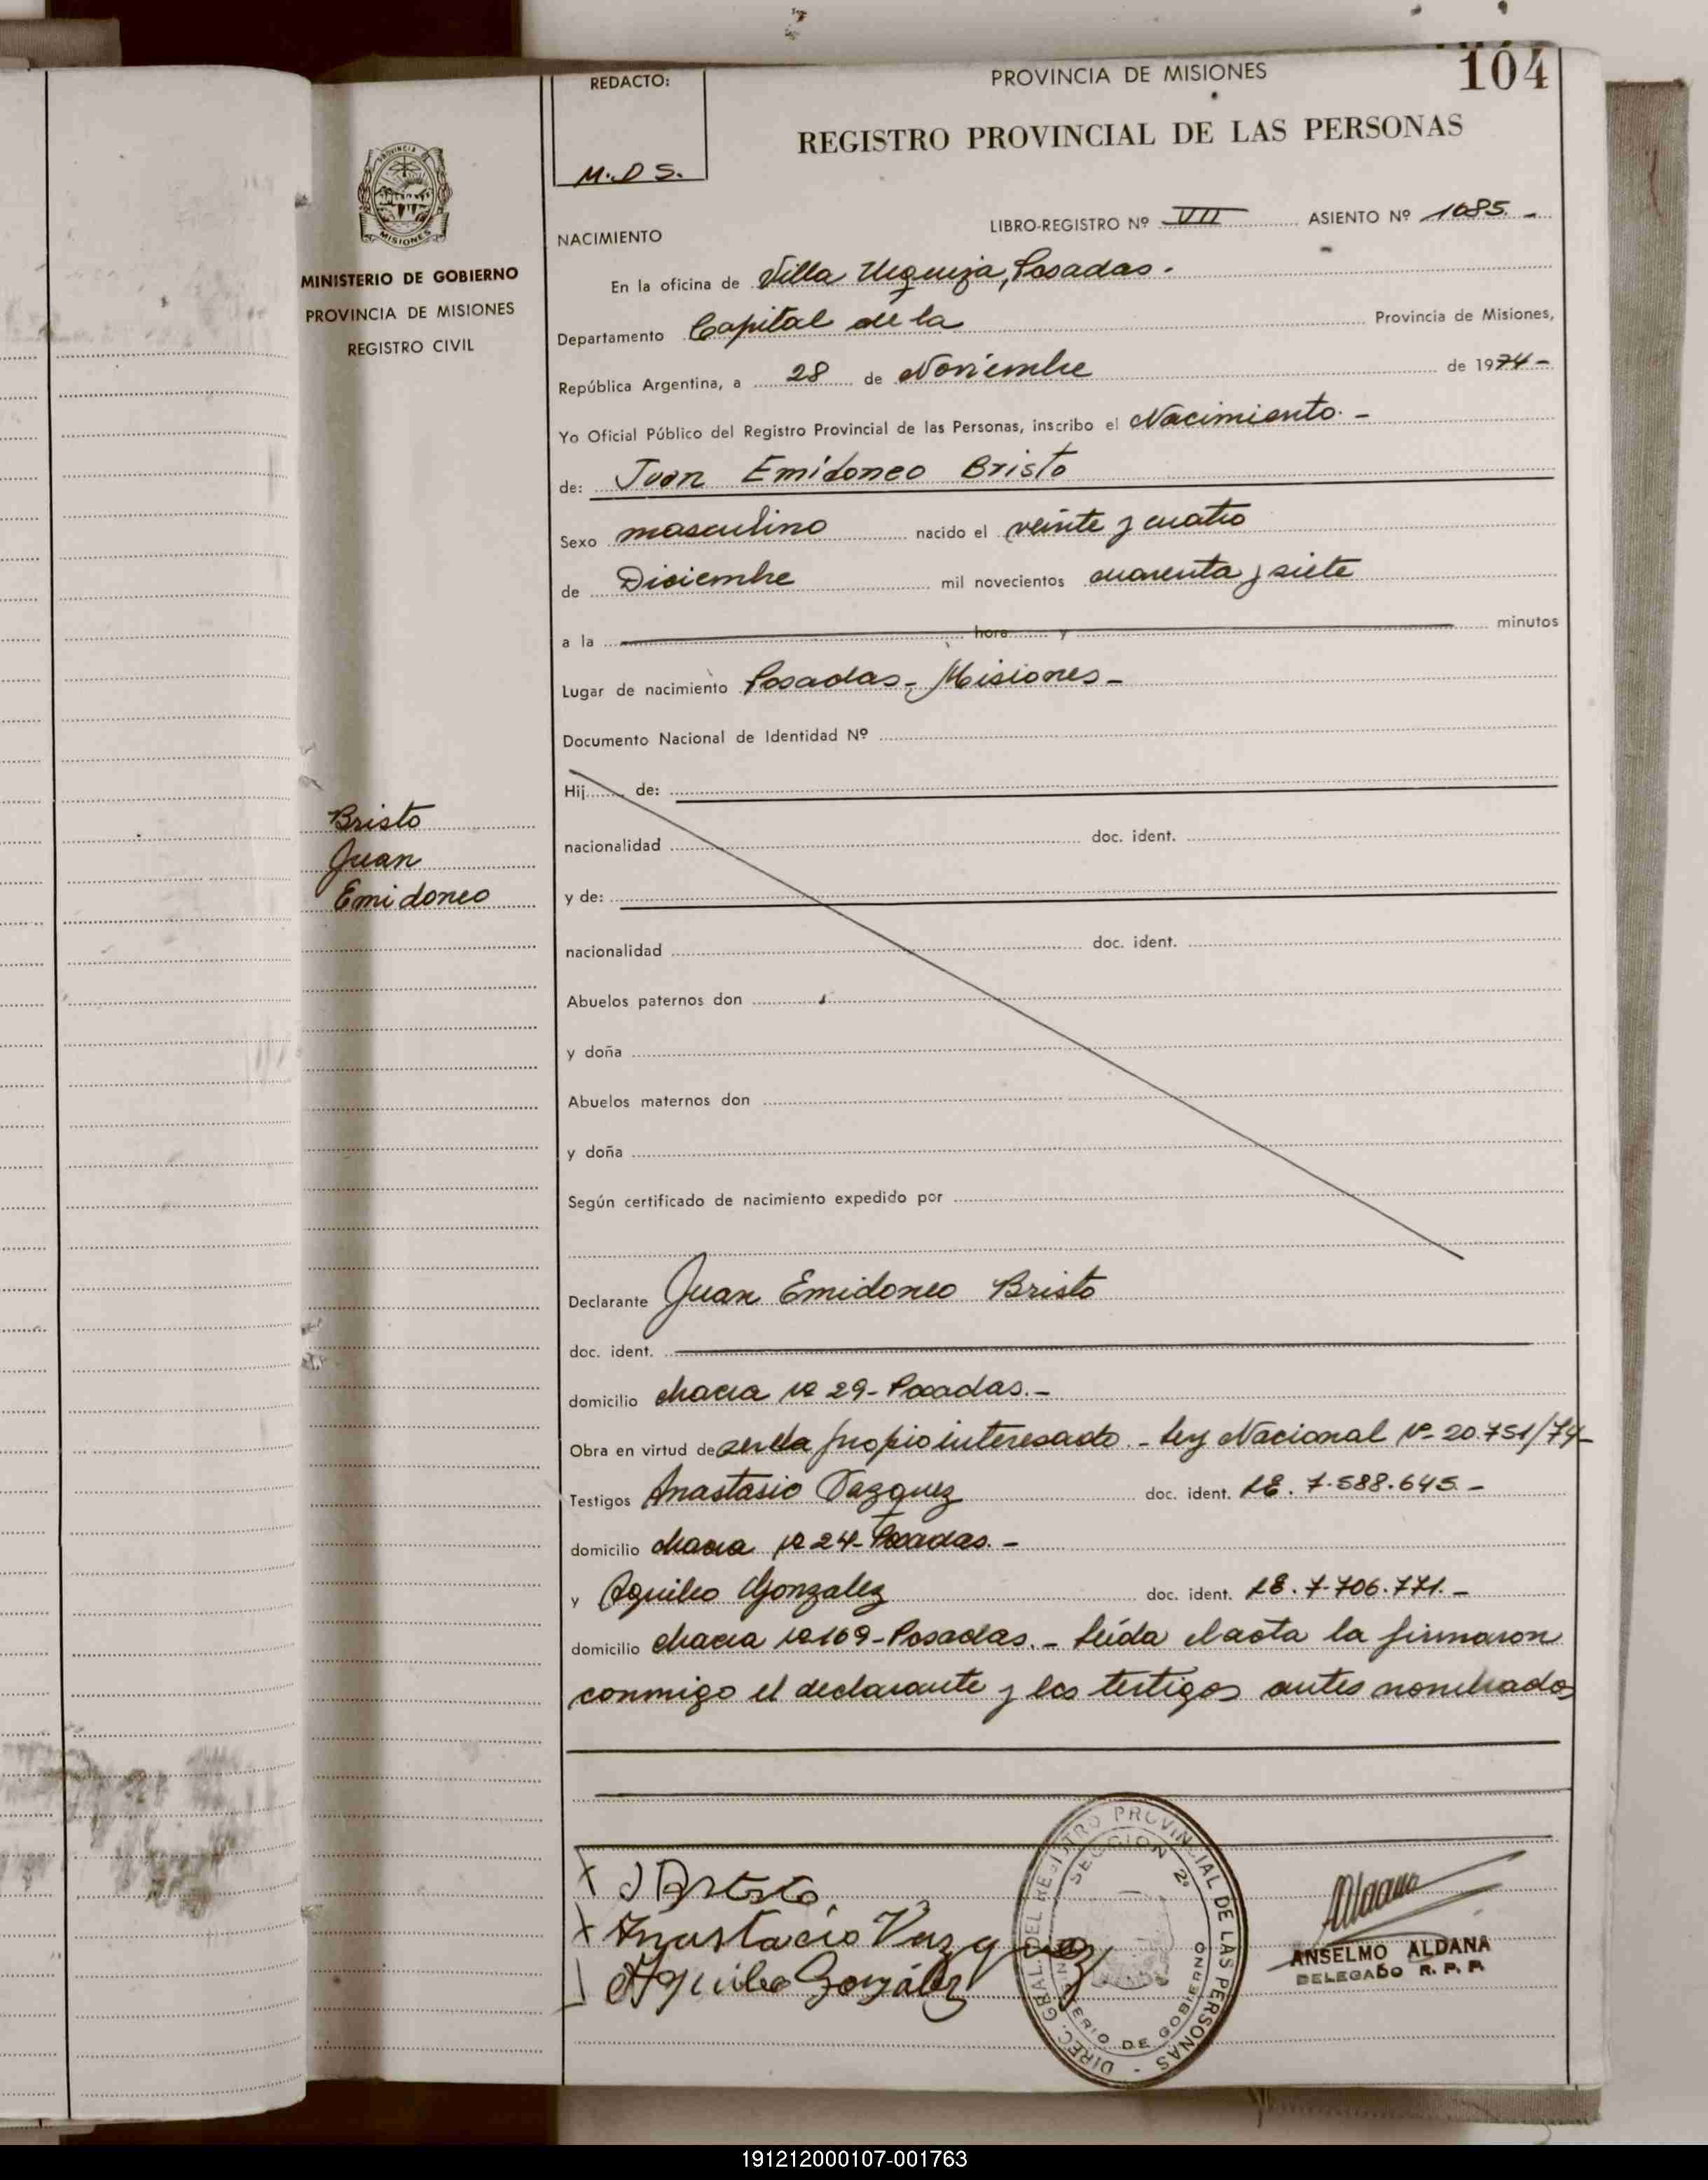 104
PROVINCIA DE MISIONES
REDACTO:
M.D S.
REGISTRO PROVINCIAL DE LAS PERSONAS
PROVINCIA DE
MISIONES
MINISTERIO DE GOBIERNO
PROVINCIA DE MISIONES
REGISTRO CIVIL
Bristo
Juan
Emidoneo
NACIMIENTO
LIBRO-REGISTRO Nº VII ASIENTO Nº 1085.-
En la oficina de Villa Urquiza, Posadas.
Departamento Capital de la Provincia de Misiones,
República Argentina, a 28 de Noviembre de 1974-
Yo Oficial Público del Registro Provincial de las Personas, inscribo el Nacimiento.-
de: Juan Emidoneo Bristo
Sexo masculino nacido el veinte y cuatro
de Diciembre mil novecientos cuarenta y siete
a la hora y minutos
Lugar de nacimiento Posadas - Misiones -
Documento Nacional de Identidad Nº
Hij de:
nacionalidad doc. ident.
y de:
nacionalidad doc. ident.
Abuelos paternos don
y doña
Abuelos maternos don
y doña
Según certificado de nacimiento expedido por
Declarante Juan Emidoneo Bristo
doc. ident.
domicilio chacra nº 29- Posadas.-
Obra en virtud de ser el propio interesado.- Ley Nacional Nº 20.751/74-
Testigos Anastasio Vazquez doc. ident. LE. 7.588.645.-
domicilio chacra nº 24- Posadas.-
y Aquileo Gonzalez doc. ident. LE. 7.706.771.-
domicilio chacra nº 169-Posadas.- Leída el acta la firmaron
conmigo el declarante y los testigos antes nombrados
J Bristo
Anastacio Vazquez
Aquileo González
DIREC. GRAL. DEL REGISTRO PROVINCIAL DE LAS PERSONAS -
SECCION 2º
DE GOBIERNO
Aldana
ANSELMO ALDANA
DELEGADO R. P. P.
191212000107-001763